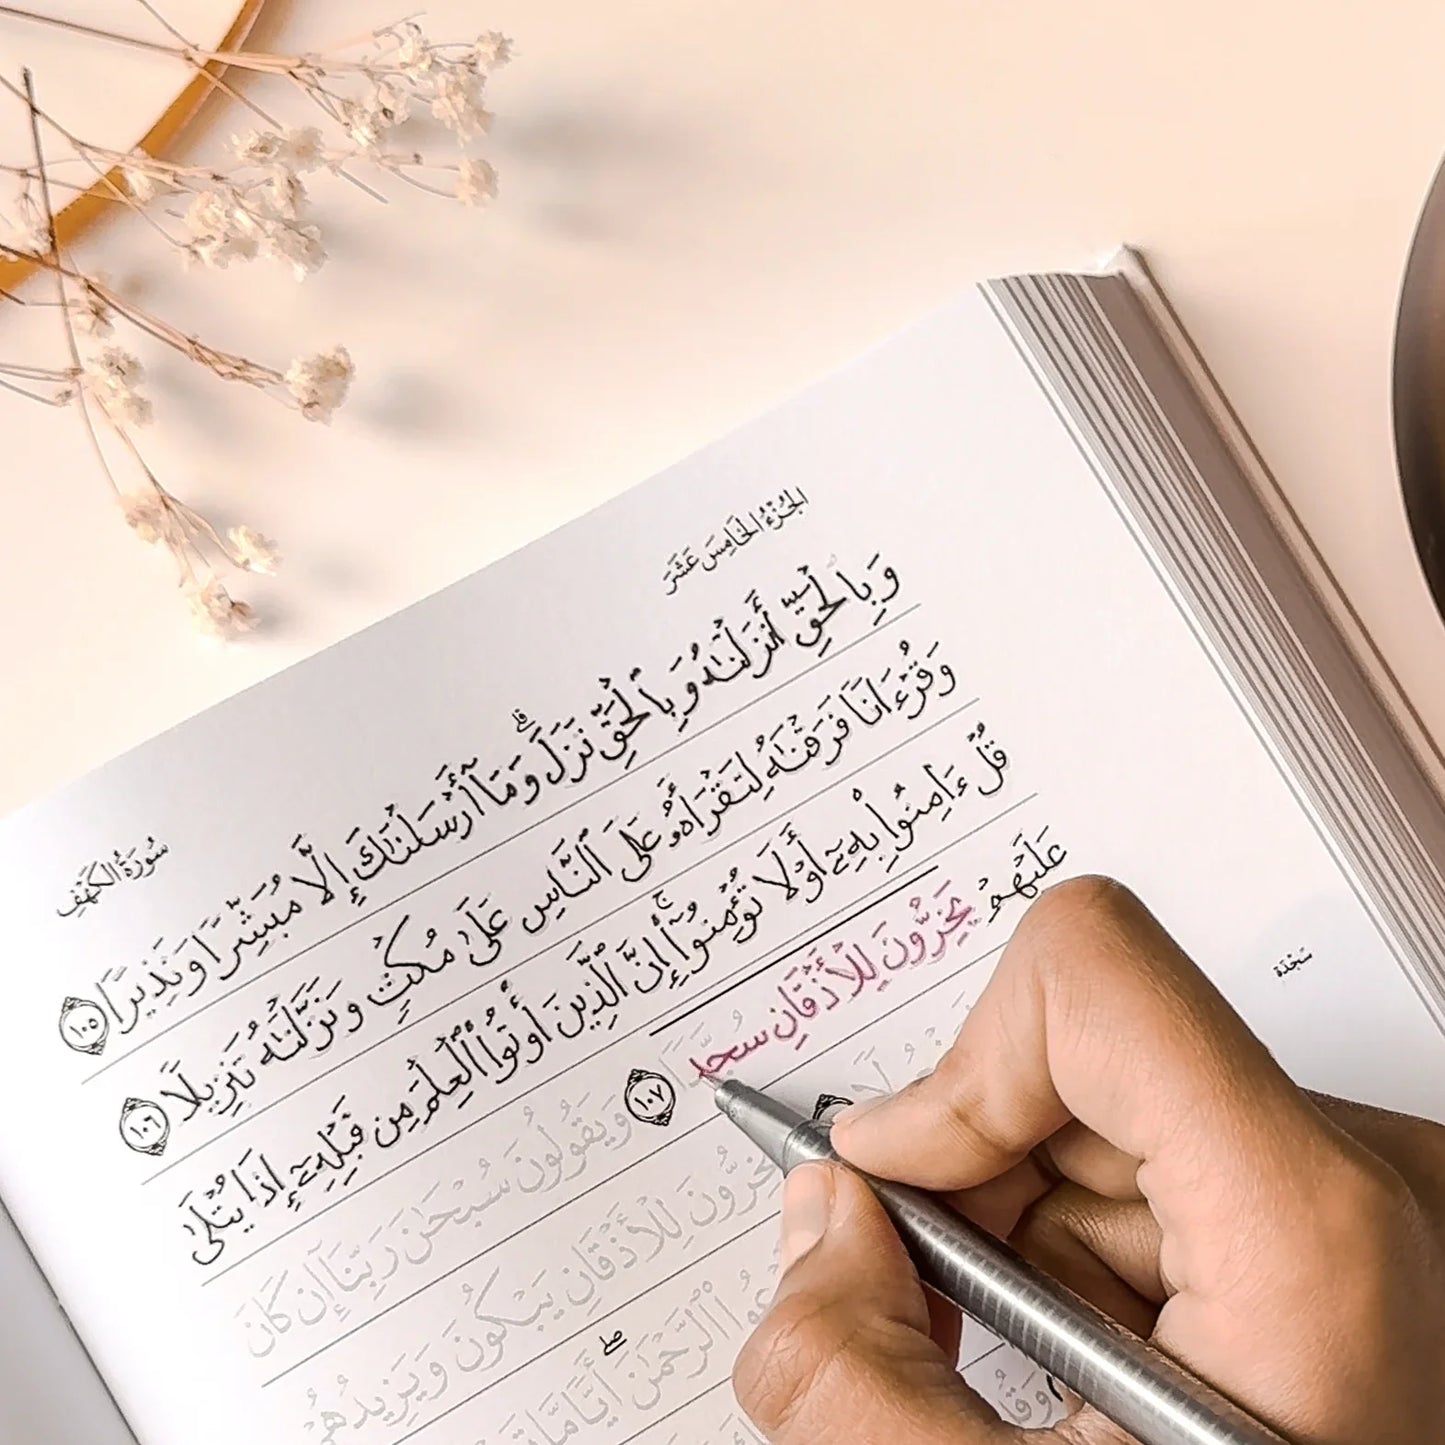 الجُزْءُ الخَامِسَ عَشَرَ
سُورَةُ الكَهْفِ
وَبِالْحَقِّ أَنزَلْنَٰهُ وَبِٱلْحَقِّ نَزَلَ ۗ وَمَآ أَرْسَلْنَٰكَ إِلَّا مُبَشِّرًا وَنَذِيرًا ١٠٥
وَقُرْءَانًا فَرَقْنَٰهُ لِتَقْرَأَهُۥ عَلَى ٱلنَّاسِ عَلَىٰ مُكْثٍ وَنَزَّلْنَٰهُ تَنزِيلًا ١٠٦
قُلْ ءَامِنُوا۟ بِهِۦٓ أَوْ لَا تُؤْمِنُوٓا۟ ۚ إِنَّ ٱلَّذِينَ أُوتُوا۟ ٱلْعِلْمَ مِن قَبْلِهِۦٓ إِذَا يُتْلَىٰ
عَلَيْهِمْ يَخِرُّونَ لِلْأَذْقَانِ سُجَّدًا ١٠٧ وَيَقُولُونَ سُبْحَٰنَ رَبِّنَآ إِن كَانَ
سَجْدَة
يَخِرُّونَ لِلْأَذْقَانِ يَبْكُونَ وَيَزِيدُهُمْ
ٱلرَّحْمَٰنَ ۖ أَيًّا مَّا